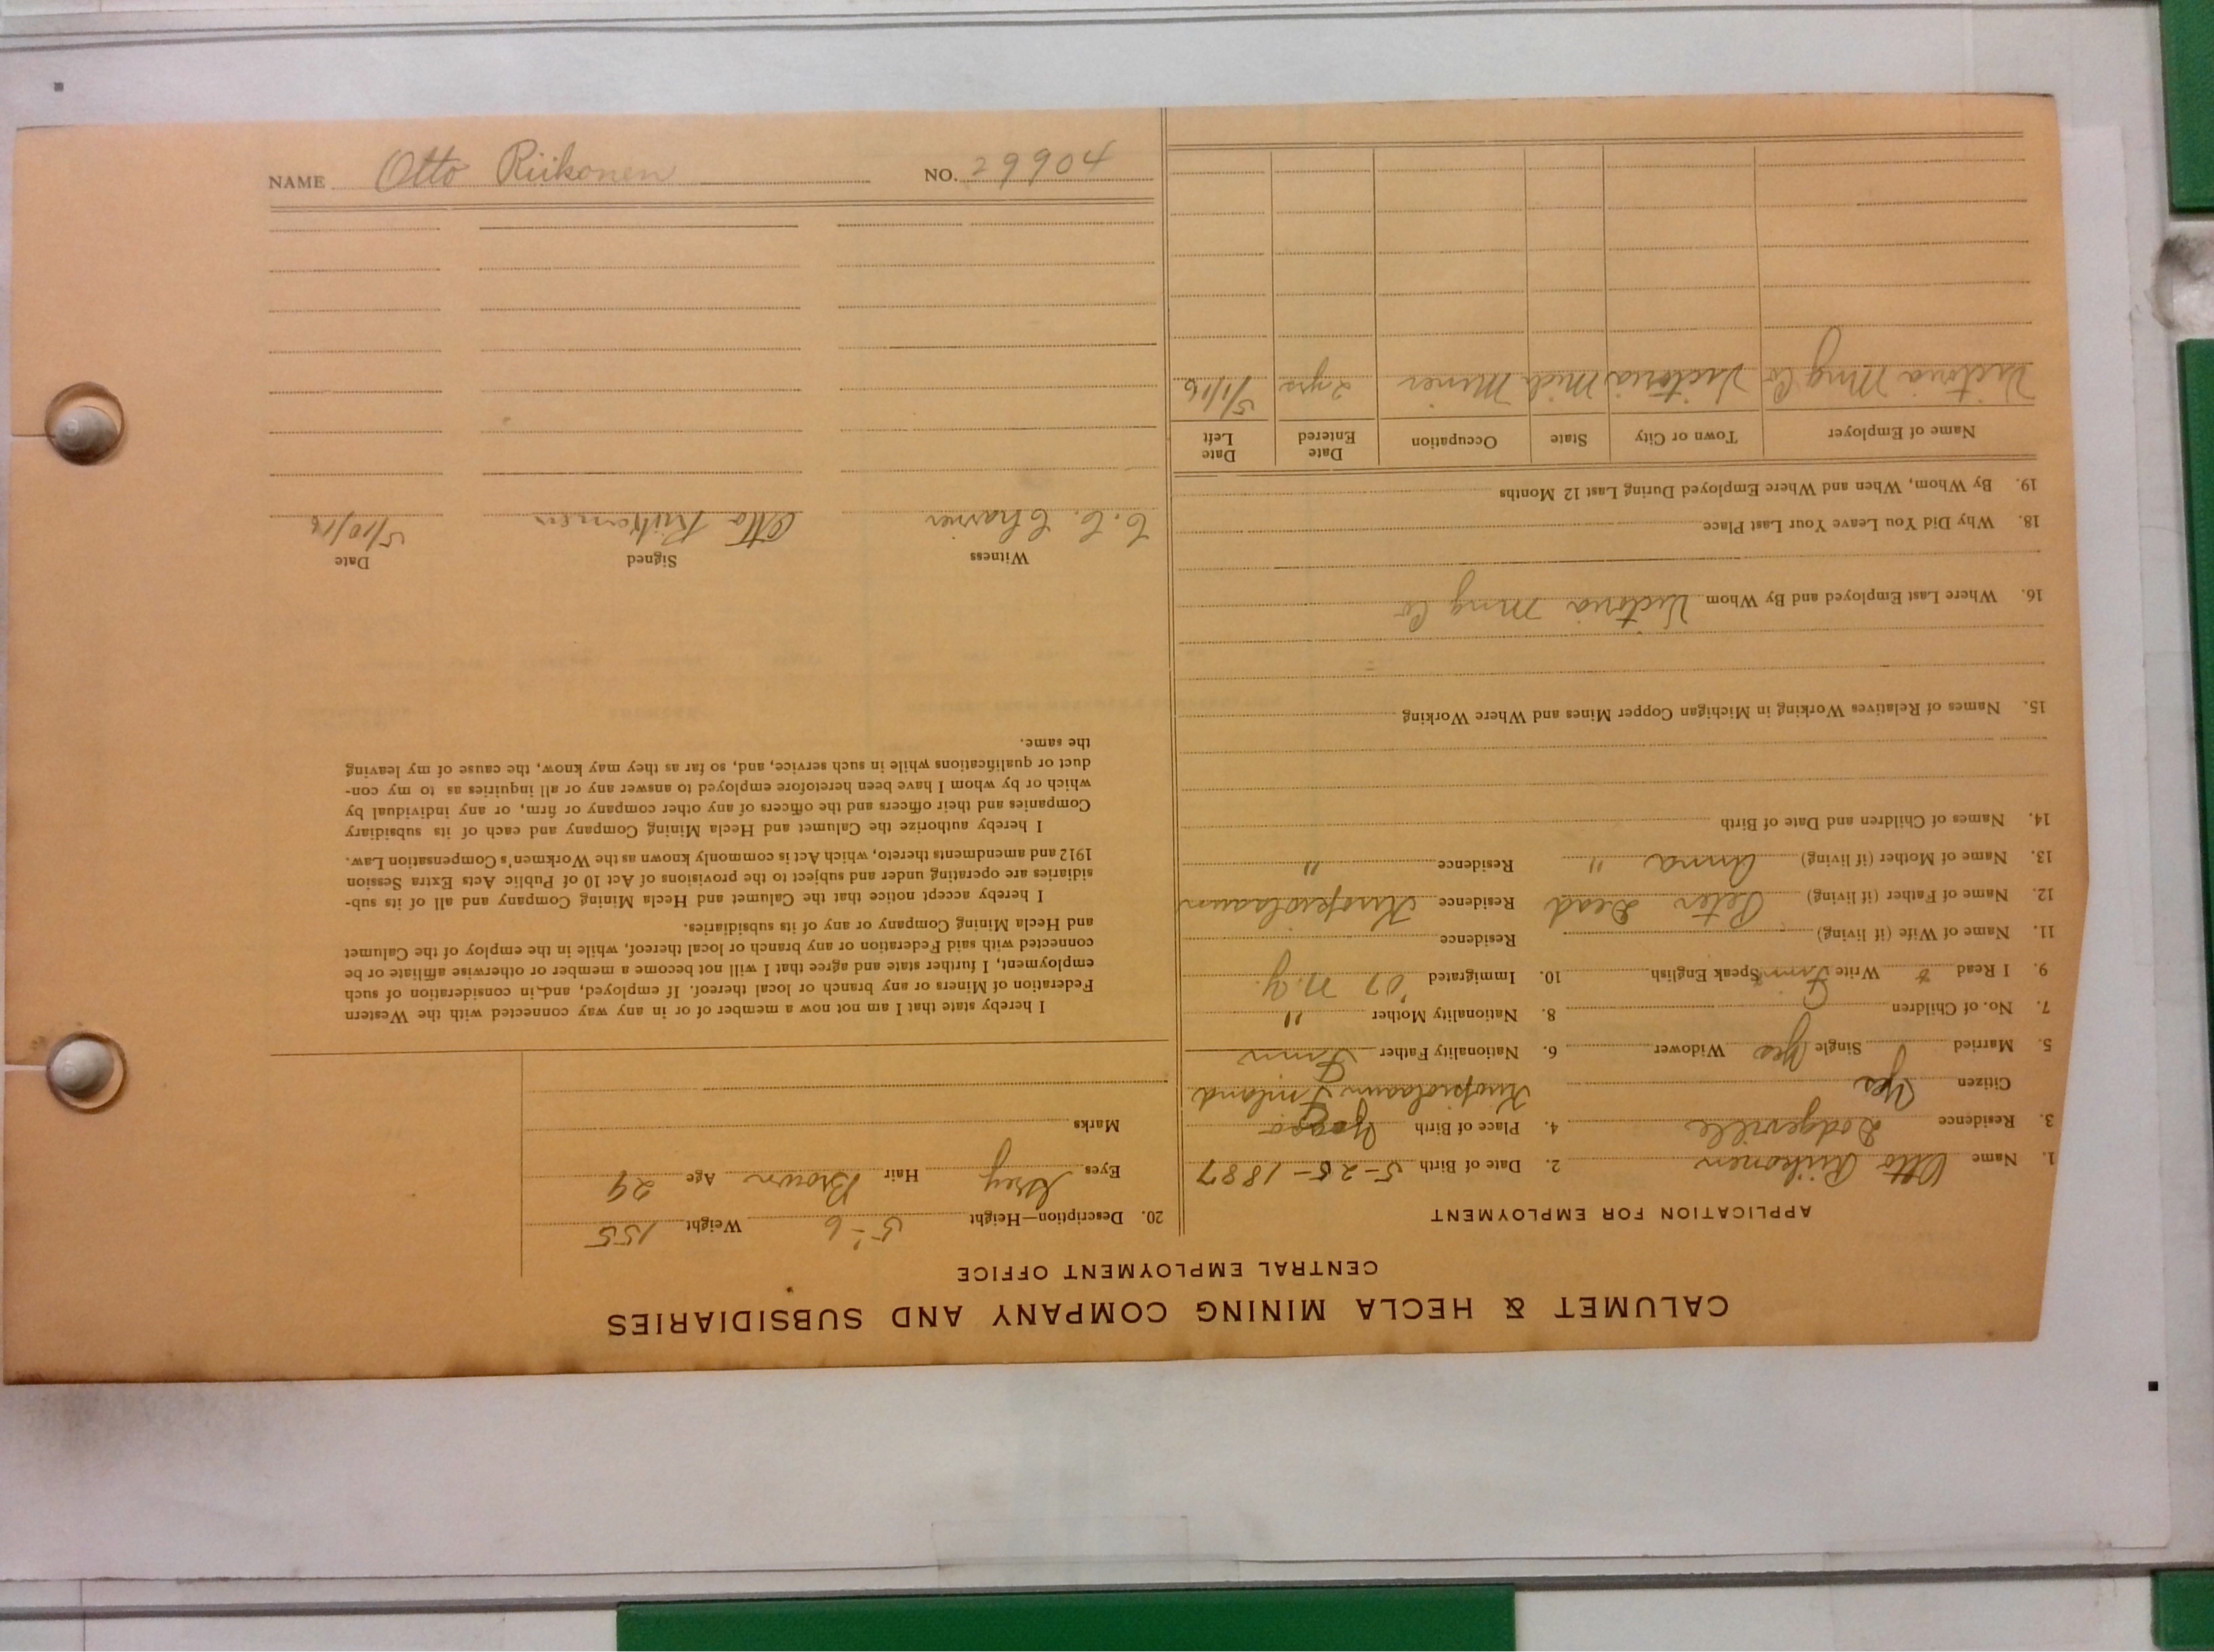 CALUMET & HECLA MINING COMPANY AND SUBSIDIARIES
CENTRAL EMPLOYMENT OFFICE
APPLICATION FOR EMPLOYMENT
1. Name Otto Riikonen 2. Date of Birth 5-25-1887
3. Residence Dodgeville 4. Place of Birth
Citizen Yes Kuopiolaani Finland
5. Married Single Yes Widower 6. Nationality Father Finn
7. No. of Children 8. Nationality Mother "
9. I Read & Write Finn Speak English 10. Immigrated '07 N.Y.
11. Name of Wife (if living) Residence
12. Name of Father (if living) Peter Dead Residence Kuopiolaani
13. Name of Mother (if living) Anna " Residence "
14. Names of Children and Date of Birth
15. Names of Relatives Working in Michigan Copper Mines and Where Working
16. Where Last Employed and By Whom Victoria Mng Co
18. Why Did You Leave Your Last Place
19. By Whom, When and Where Employed During Last 12 Months
Name of Employer Town or City State Occupation Date Entered Date Left
Victoria Mng Co Victoria Mich Miner 2 yrs 5/1/16
20. Description—Height 5-6 Weight 155
Eyes Grey Hair Brown Age 29
Marks
I hereby state that I am not now a member of or in any way connected with the Western
Federation of Miners or any branch or local thereof. If employed, and in consideration of such
employment, I further state and agree that I will not become a member or otherwise affiliate or be
connected with said Federation or any branch or local thereof, while in the employ of the Calumet
and Hecla Mining Company or any of its subsidiaries.
I hereby accept notice that the Calumet and Hecla Mining Company and all of its sub-
sidiaries are operating under and subject to the provisions of Act 10 of Public Acts Extra Session
1912 and amendments thereto, which Act is commonly known as the Workmen's Compensation Law.
I hereby authorize the Calumet and Hecla Mining Company and each of its subsidiary
Companies and their officers and the officers of any other company or firm, or any individual by
which or by whom I have been heretofore employed to answer any or all inquiries as to my con-
duct or qualifications while in such service, and, so far as they may know, the cause of my leaving
the same.
Witness Signed Date
Otto Riikonen 5/10/16
NAME Otto Riikonen NO. 29904